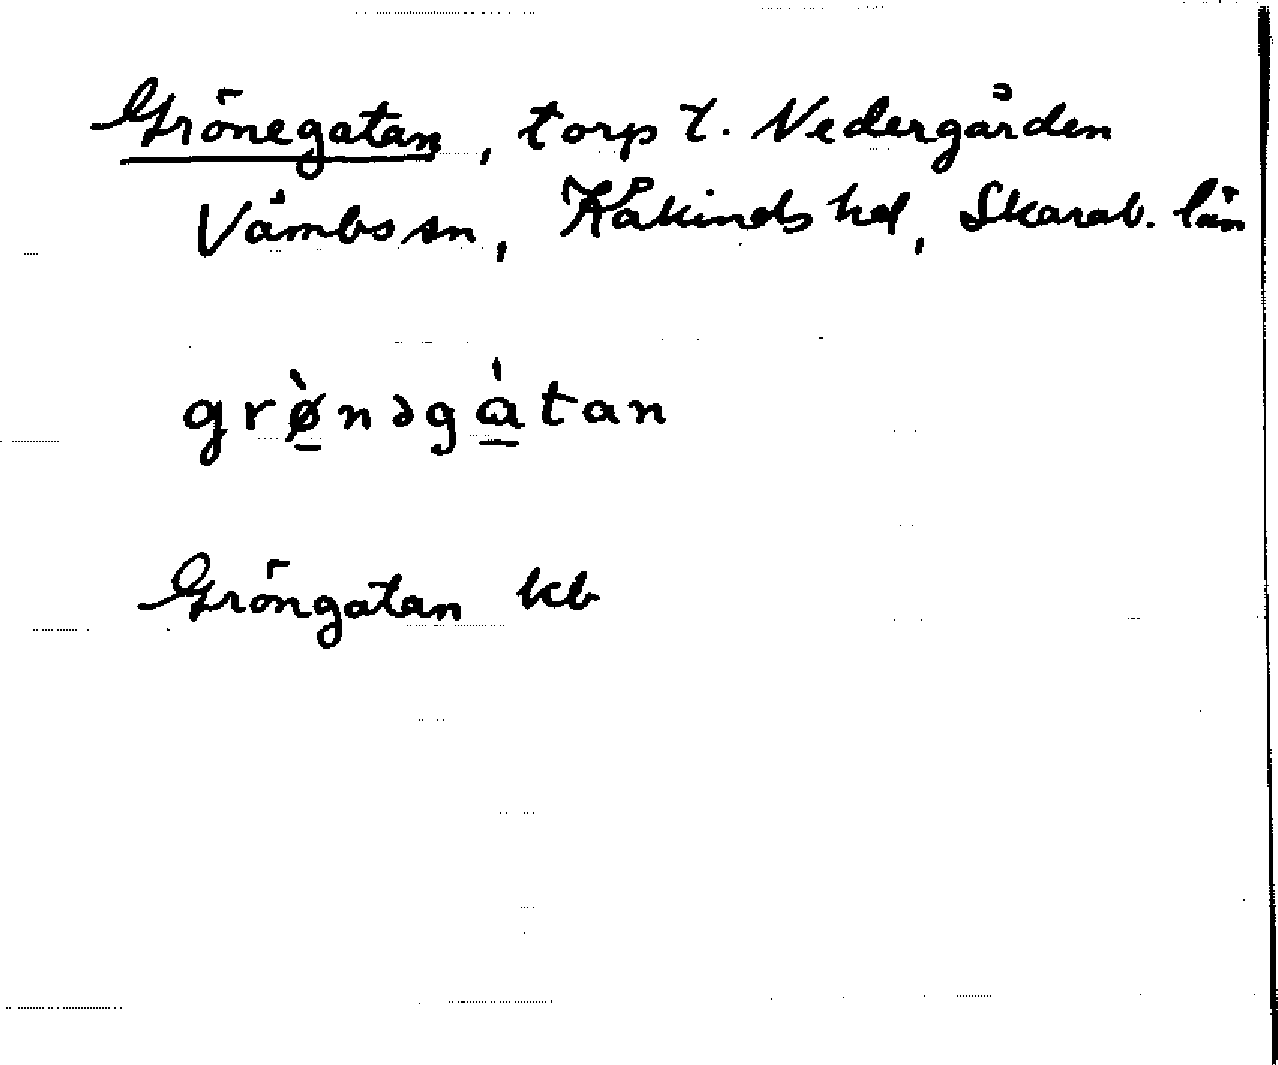 Grönegatan, torp t. Nedergården
Våmbs sn, Kåkinds hd, Skarab. län
grø̀nəgàtan
Gröngatan kb